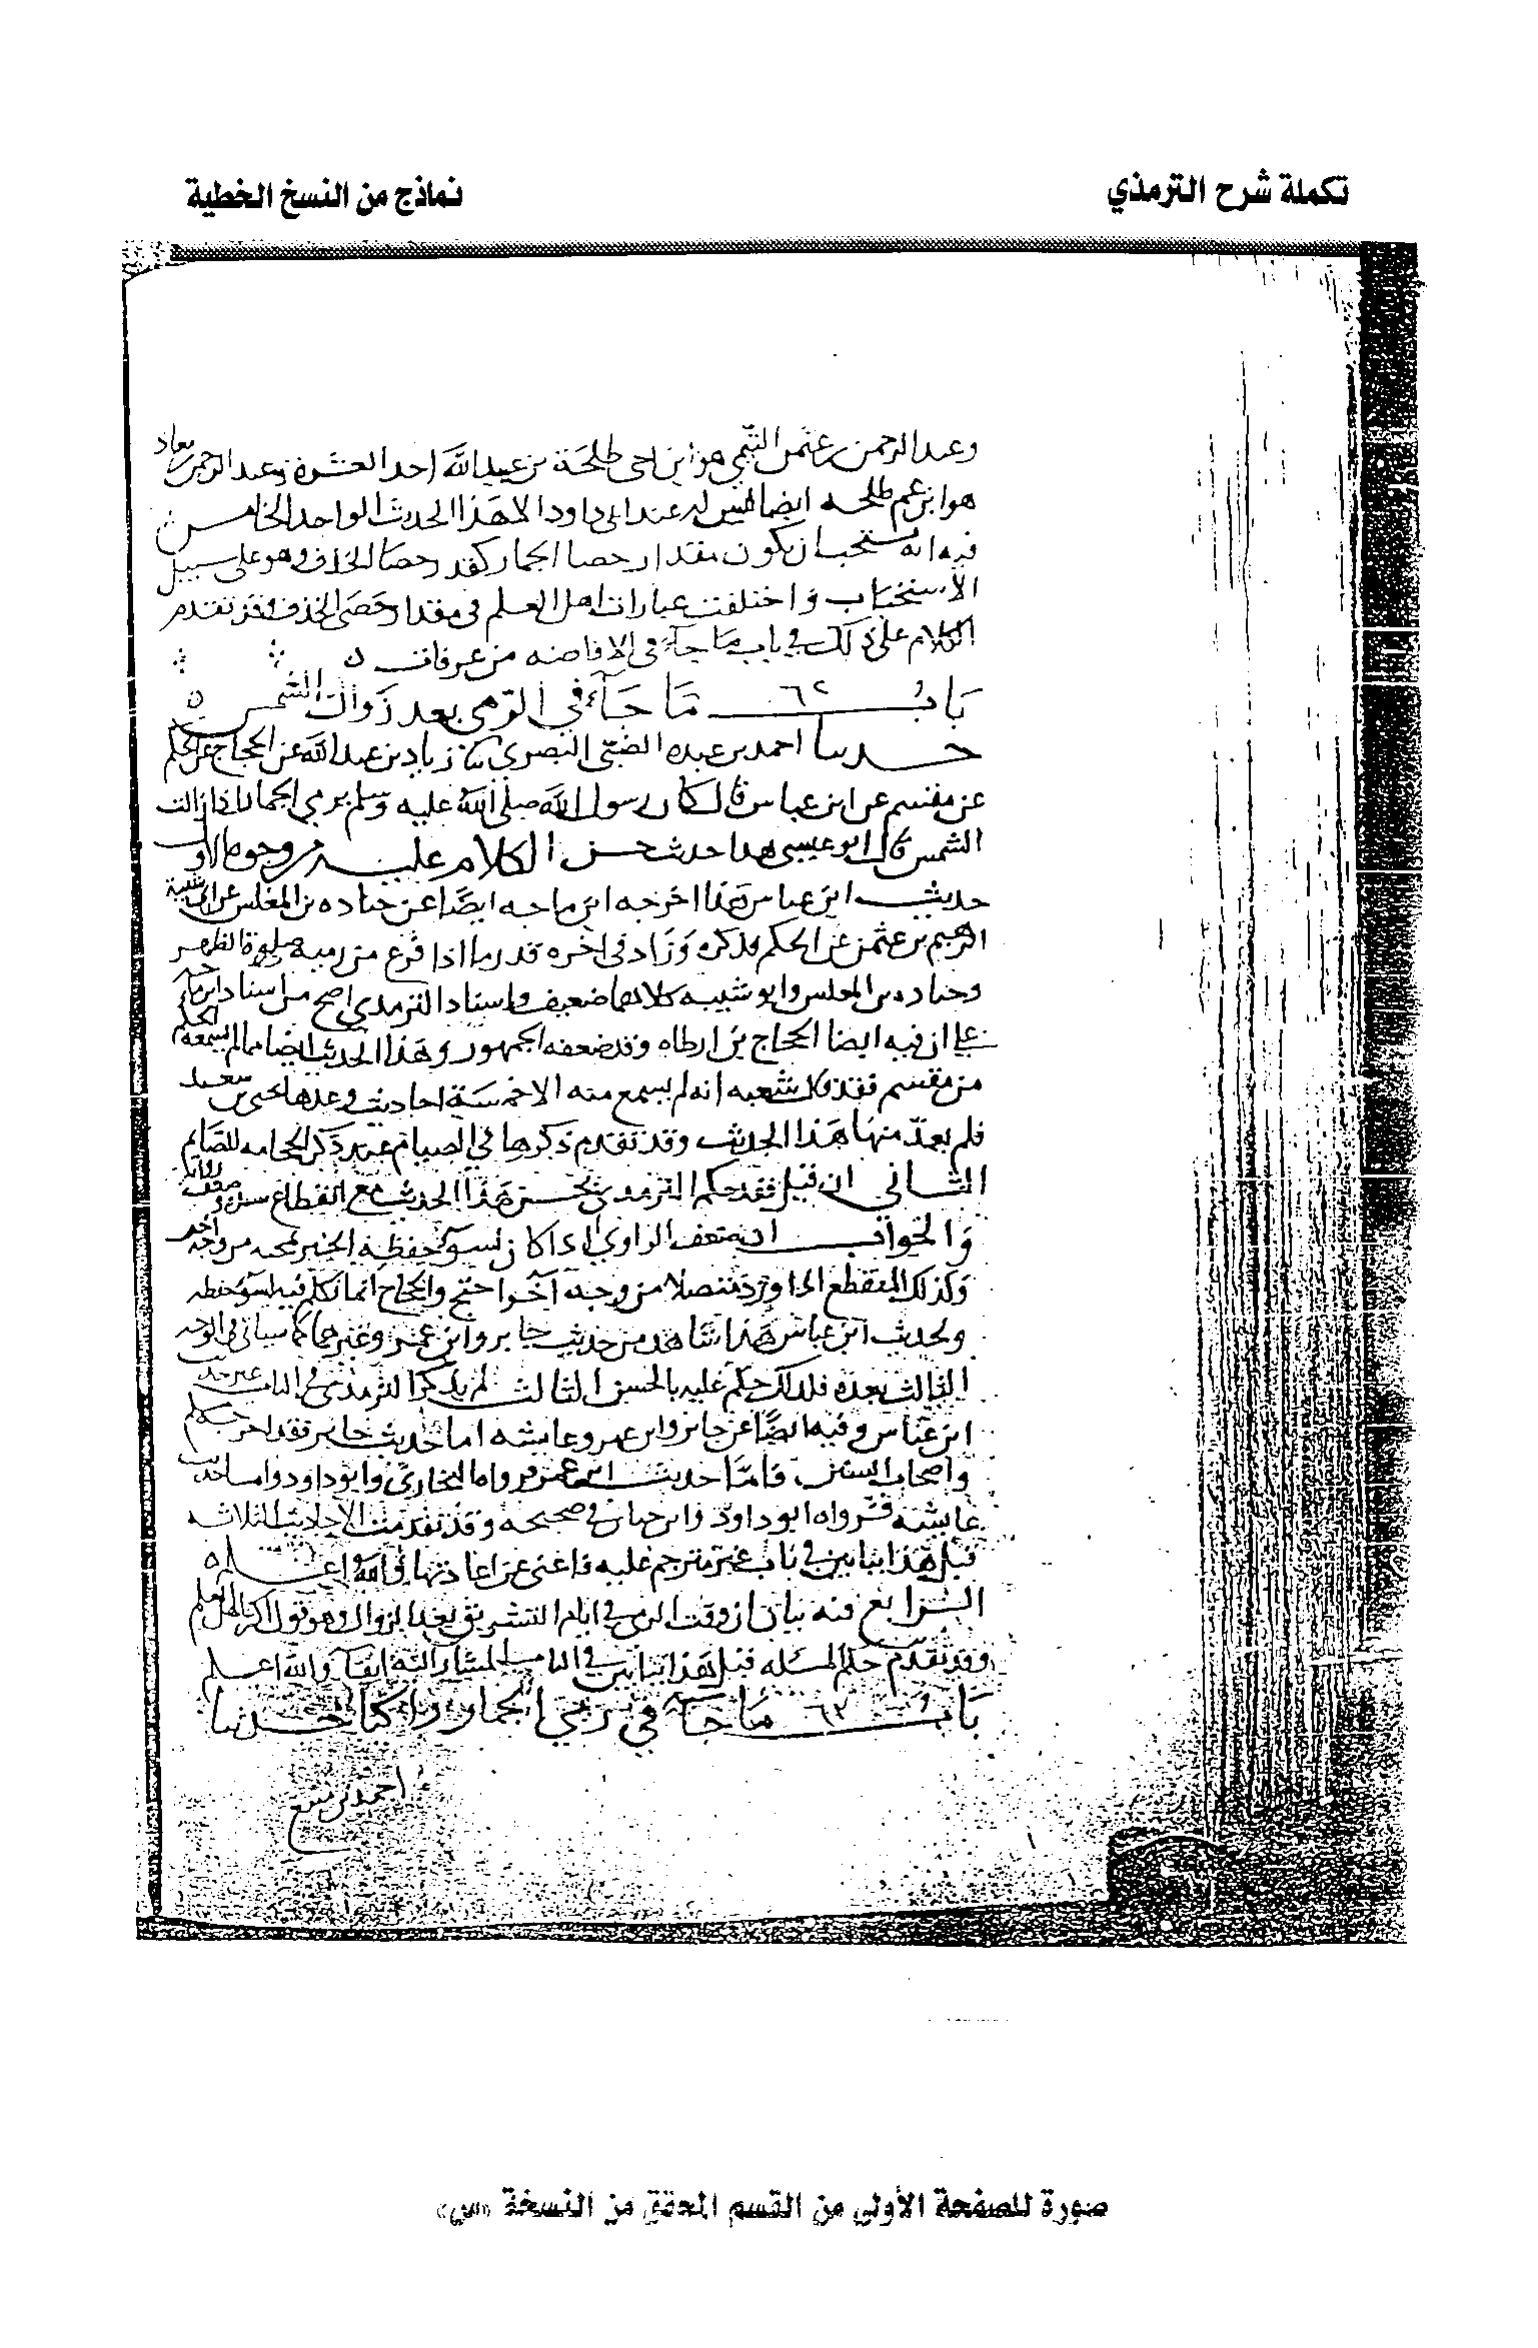 تكملة شرح الترمذي
نماذج من النسخ الخطية
وعبد الرحمن بن عثمن التيمي هو ابن اخى طلحة بن عبيد الله احد العشرة وعبد الرحمن بن معاذ
هو ابن عم طلحه ايضا ليس له عند ابى داود الا هذا الحديث الواحد الخامس
فيه انه يستحب ان يكون مقدار حصا الجمار كقدر حصا الخذف وهو على سبيل
الاستحباب واختلفت عبارات اهل العلم في مقدار حصى الخذف وقد تقدم
الكلام على ذلك في باب ما جآء في الافاضه من عرفات
باب ٦٢ ما جآء في الرمي بعد زوال الشمس
حدثنا احمد بن عبده الضبي البصرى ثنا زياد بن عبد الله عن الحجاج عن الحكم
عن مقسم عن ابن عباس قال كان رسول الله صلى الله عليه وسلم يرمي الجمار اذا زالت
الشمس قال ابو عيسى هذا حديث حسن الكلام عليه من وجوه الاول
حديث ابن عباس هذا اخرجه ابن ماجه ايضا عن جباده بن المغلس عن ابى شيبة
ابرهيم بن عثمن عن الحكم فذكره وزاد في اخره قدر ما اذا فرغ من رميه صلى الظهر
وجباده بن المغلس وابو شيبه كلاهما ضعيف واسناد الترمذي اصح من اسناد ابن ماجه
على ان فيه ايضا الحجاج بن ارطاه وقد ضعفه الجمهور وهذا الحديث ايضا مما لم يسمعه الحكم
من مقسم فقد قال شعبه انه لم يسمع منه الا خمسة احاديث وعدها يحيى بن سعيد
فلم يعد منها هذا الحديث وقد تقدم ذكرها في الصيام عند ذكر الحجامه للصايم
الثاني ان قيل فقد حكم الترمذي بحسن هذا الحديث مع انقطاع سنده وضعف راويه
والجواب ان ضعف الراوي اذا كان لسوء حفظه انجبر بمجيه من وجه اخر
وكذلك المنقطع اذا ورد متصلا من وجه آخر احتج والحجاج انما تكلم فيه لسوء حفظه
ولحديث ابن عباس هذا شاهد من حديث جابر وابن عمر وغيرهما كما سياتى في الوجه
الثالث بعده فلذلك حكم عليه بالحسن الثالث لم يذكر الترمذى في الباب غير حديث
ابن عباس وفيه ايضا عن جابر وابن عمر وعايشه اما حديث جابر فقد اخرجه مسلم
واصحاب السنن وأما حديث ابن عمر فرواه البخاري وابو داود واما حديث
عايشة فرواه ابو داود وابن حبان في صحيحه وقد تقدمت الاحاديث الثلاثه
قبل هذا ببابين في باب غير مترجم عليه فاغنى عن اعادتها والله اعلم
الرابع فيه بيان ان وقت الرمي في ايام التشريق بعد الزوال وهو قول اكثر اهل العلم
وقد تقدم حكم المسله قبل هذا ببابين في الباب المشار اليه انفا والله اعلم
باب ٦٣ ما جآء في رمي الجمار راكبا حدثنا
احمد بن منيع
صورة للصفحة الأولى من القسم المحقق من النسخة «س»